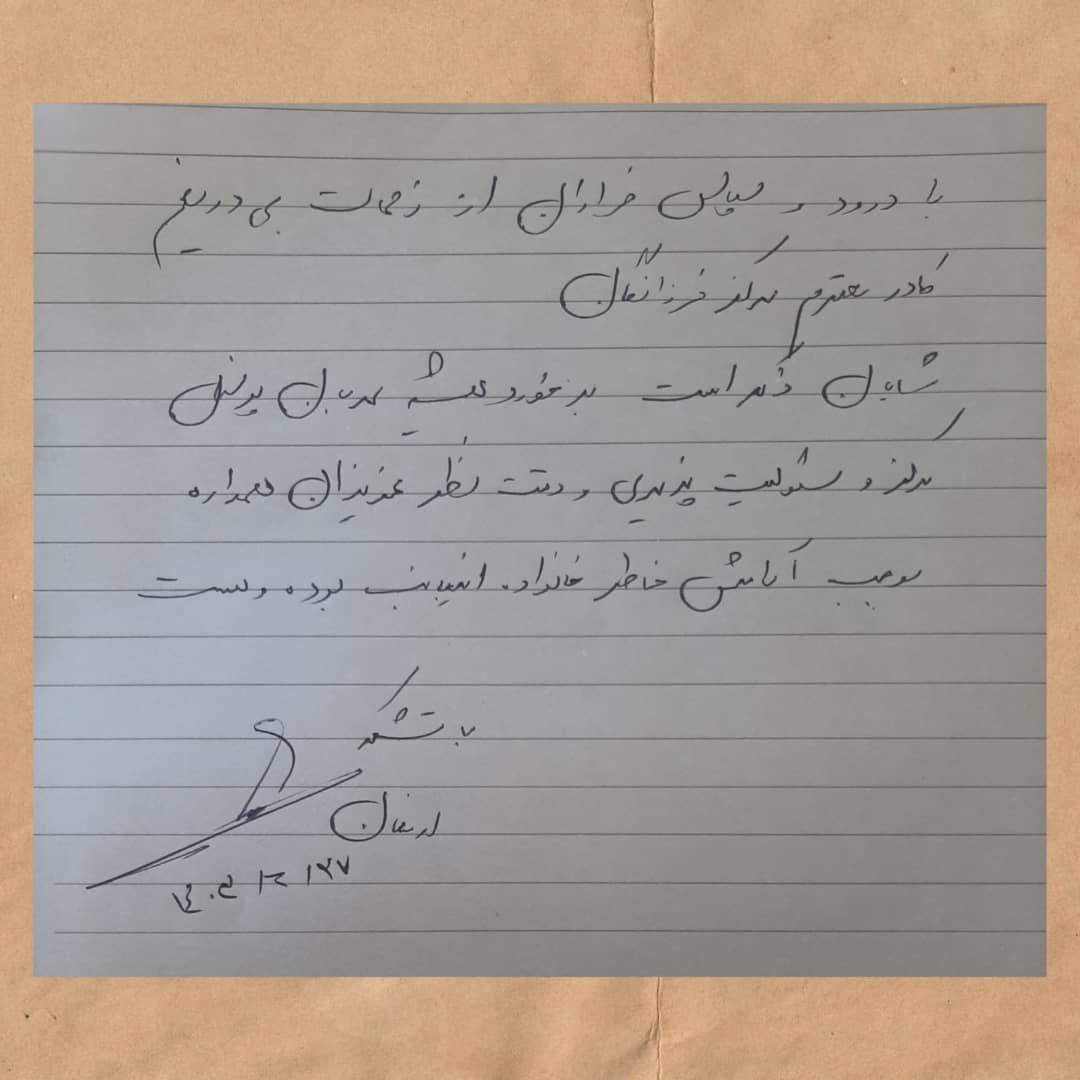 با درود و سپاس فراوان از زحمات بی دریغ
کادر محترم مرکز فرزانگان
شایان ذکر است برخورد همیشه مهربان پرسنل
مرکز و مسئولیت پذیری و دقت نظر عزیزان همواره
موجب آرامش خاطر خانواده اینجانب بوده و هست
با تشکر
ارمغان